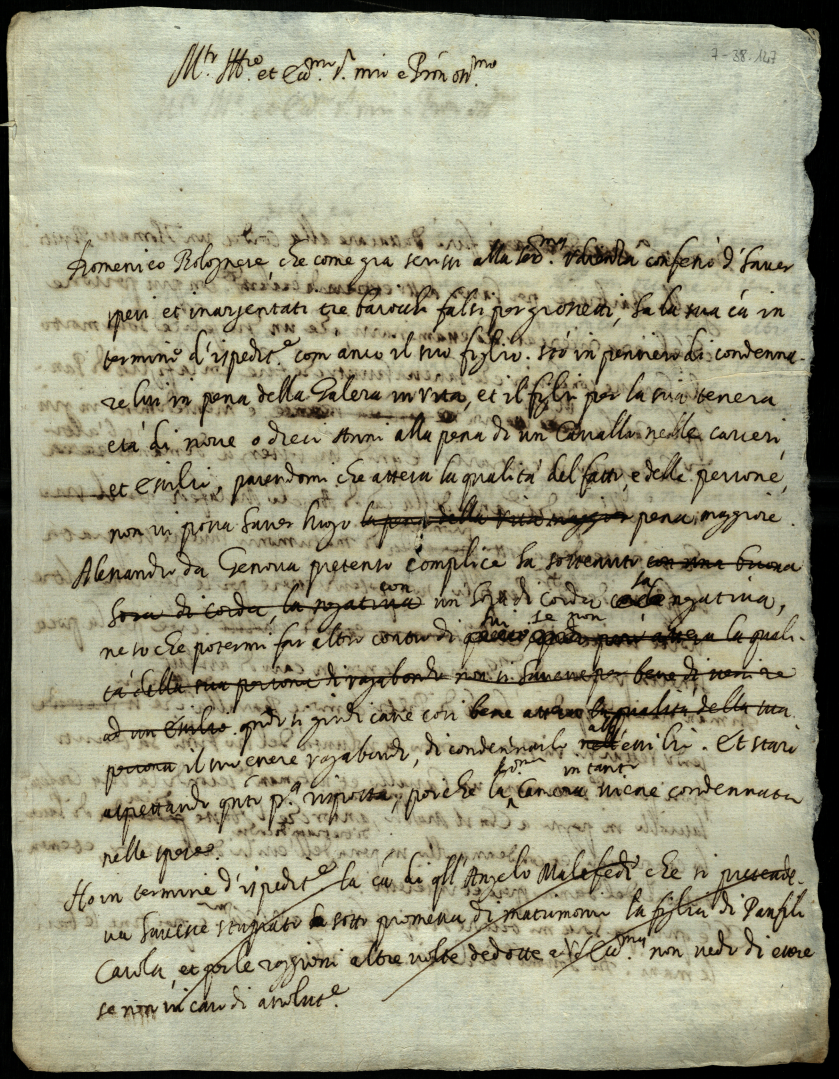 7-38.147
M.to Ill.re et Ecc.mo S.r mio e Pron oss.mo
Domenico Bolognese, che come gia scrissi alla confessò d'haver
spesi et inargentati tre baiocchi falsi per grossetti, ha la sua cã in
termine d'ispedit.e com anco il suo figlio. stò in pensiero di condenna-
re lui in pena della Galera in vita, et il figlio per la sua tenera
età di nove o dieci Anni alla pena di un Cavallo nelle carceri,
et esilio, parendomi che attesa la qualità del fatto, e delle persone,
non vi possa haver luogo la pena della vita maggior pena maggiore.
Alessandro da Genova preteso complice ha sostenuto con una buona
hora di corda, la negativa con un' hora di corda la negativa,
ne so che potermi far altro contro di lui se non però attesa la quali-
tà della sua persona di vagabondo non si havesse per bene di venire
ad un esilio. qndo si giudicasse così bene atteso la qualità della sua
persona il suo essere vagabondo, di condennarlo all' esilio. Et starò
aspettando qnto p.a risposta, poiche la Camera in tanto viene condennata
nelle spese.
Ho in termine d'ispedit.e la cã di qll' Angelo Malefedi che si pretende-
va havesse stuprato sotto promessa di matrimonio la figlia di Panfilo
Carola, et per le raggioni altre volte dedotte a non vedo di essere
se non in caso di assolut.e